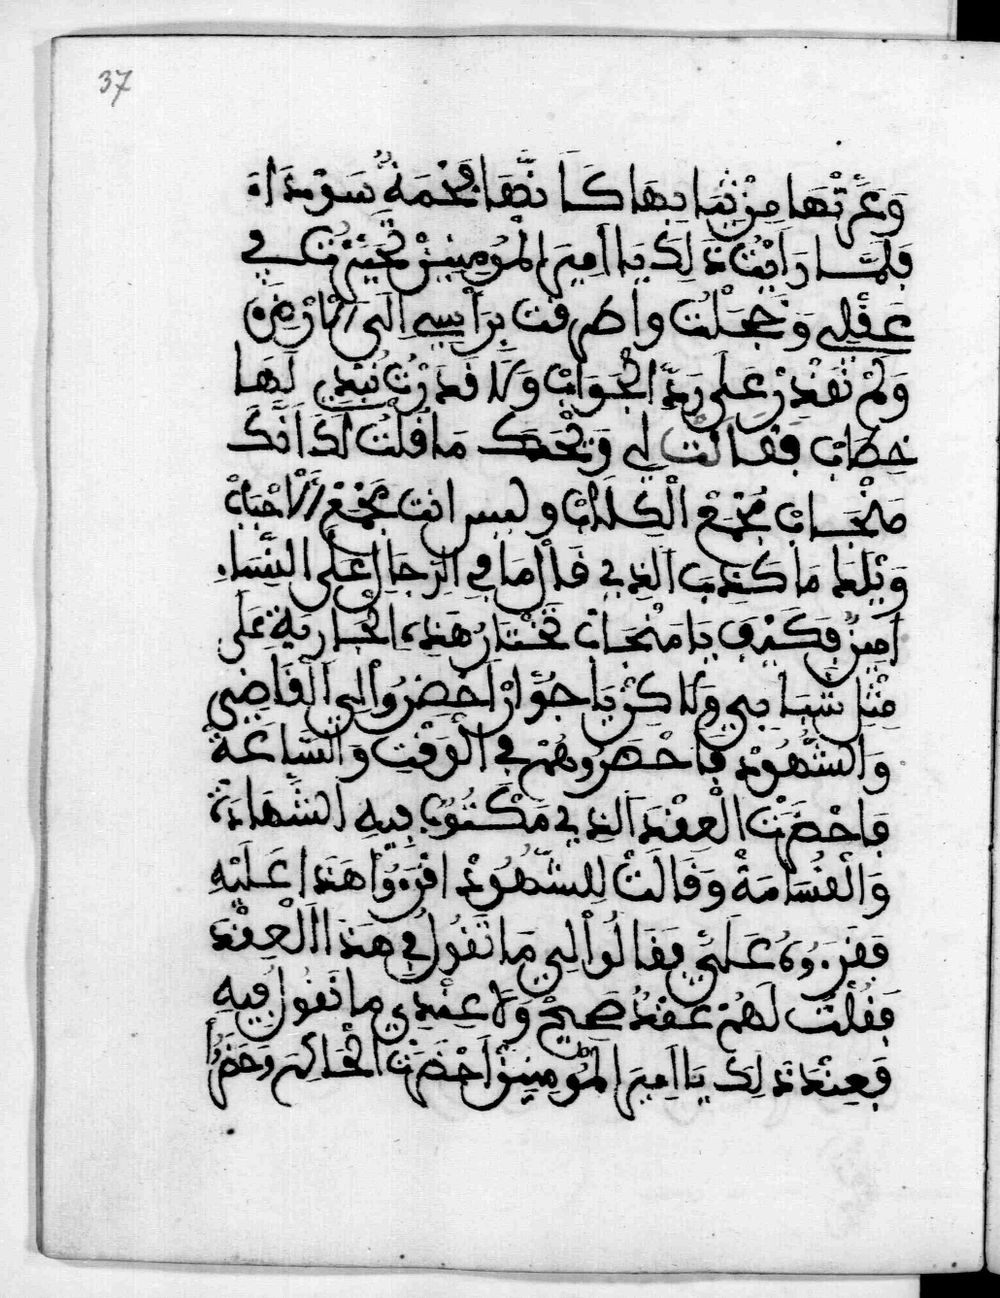 37
وَعَرَّتْهَا مِنْ ثِيَابِهَا كَأَنَّهَا فَحْمَةٌ سَوْدَاءَ
فَلَمَّا رَايْتُ ذَلِكَ يَا امِيرَ الْمُومِنِينْ تَحَيَّرْتُ فِي
عَقْلِي وَخَجَلْتُ واطرقت بِرَأْسِي الَى الْارْضِ
وَلَمْ نَقْدِرْ عَلَى رَدِّ الْجَوَابْ وَلَا قَدَرْتُ نُبْدِي لَهَا
خِطَابْ فَقَالَتْ لِي وَيْحَكَ مَا قُلْتُ لَكَ انَّكَ
مِنْجَابْ تَجْمَعْ الْكِلَابْ وليس انت تجمع الْاحْبَابْ
وَيْلَكَ مَا كَذِبَ الذِي قَالْ مَا فِي الرِّجَالْ عَلَى النِّسَاءِ
امِينْ فَكَيْفَ يَا مِنْجَابْ تَخْتَارُ هَذِهِ الْجَارِيَةَ عَلَى
مِثْلْ شَبَابِي وَلَا كِنْ يَا جَوَارْ احْضِرُوا لِي الْقَاضِي
وَالشُّهُودْ فَاحْضَرُوهُمْ فِي الْوَقْتِ وَالسَّاعَةْ
فَاحْضَرَتْ الْعِقْدَ الذِي مَكْتُوبْ فِيهِ الشَّهَادَةْ
وَالْقُسَامَةْ وَقَالَتْ لِلشُّهُودْ اقْرَءُوا هَذَا عَلَيْهِ
فَقَرَءُوهُ عَلَيَّ فَقَالُوا لِي مَا تَقُولُ فِي هَذَا الْعِقْدْ
فَقُلْتُ لَهُمْ عَقْدٌ صَحِيحْ وَلَا عِنْدِي مَا نَقُولُ فِيهِ
فَعِنْدَ ذَلِكَ يَا امِيرَ الْمُومِنِينْ احْضَرَتْ الْحَدَّادَ وحضر